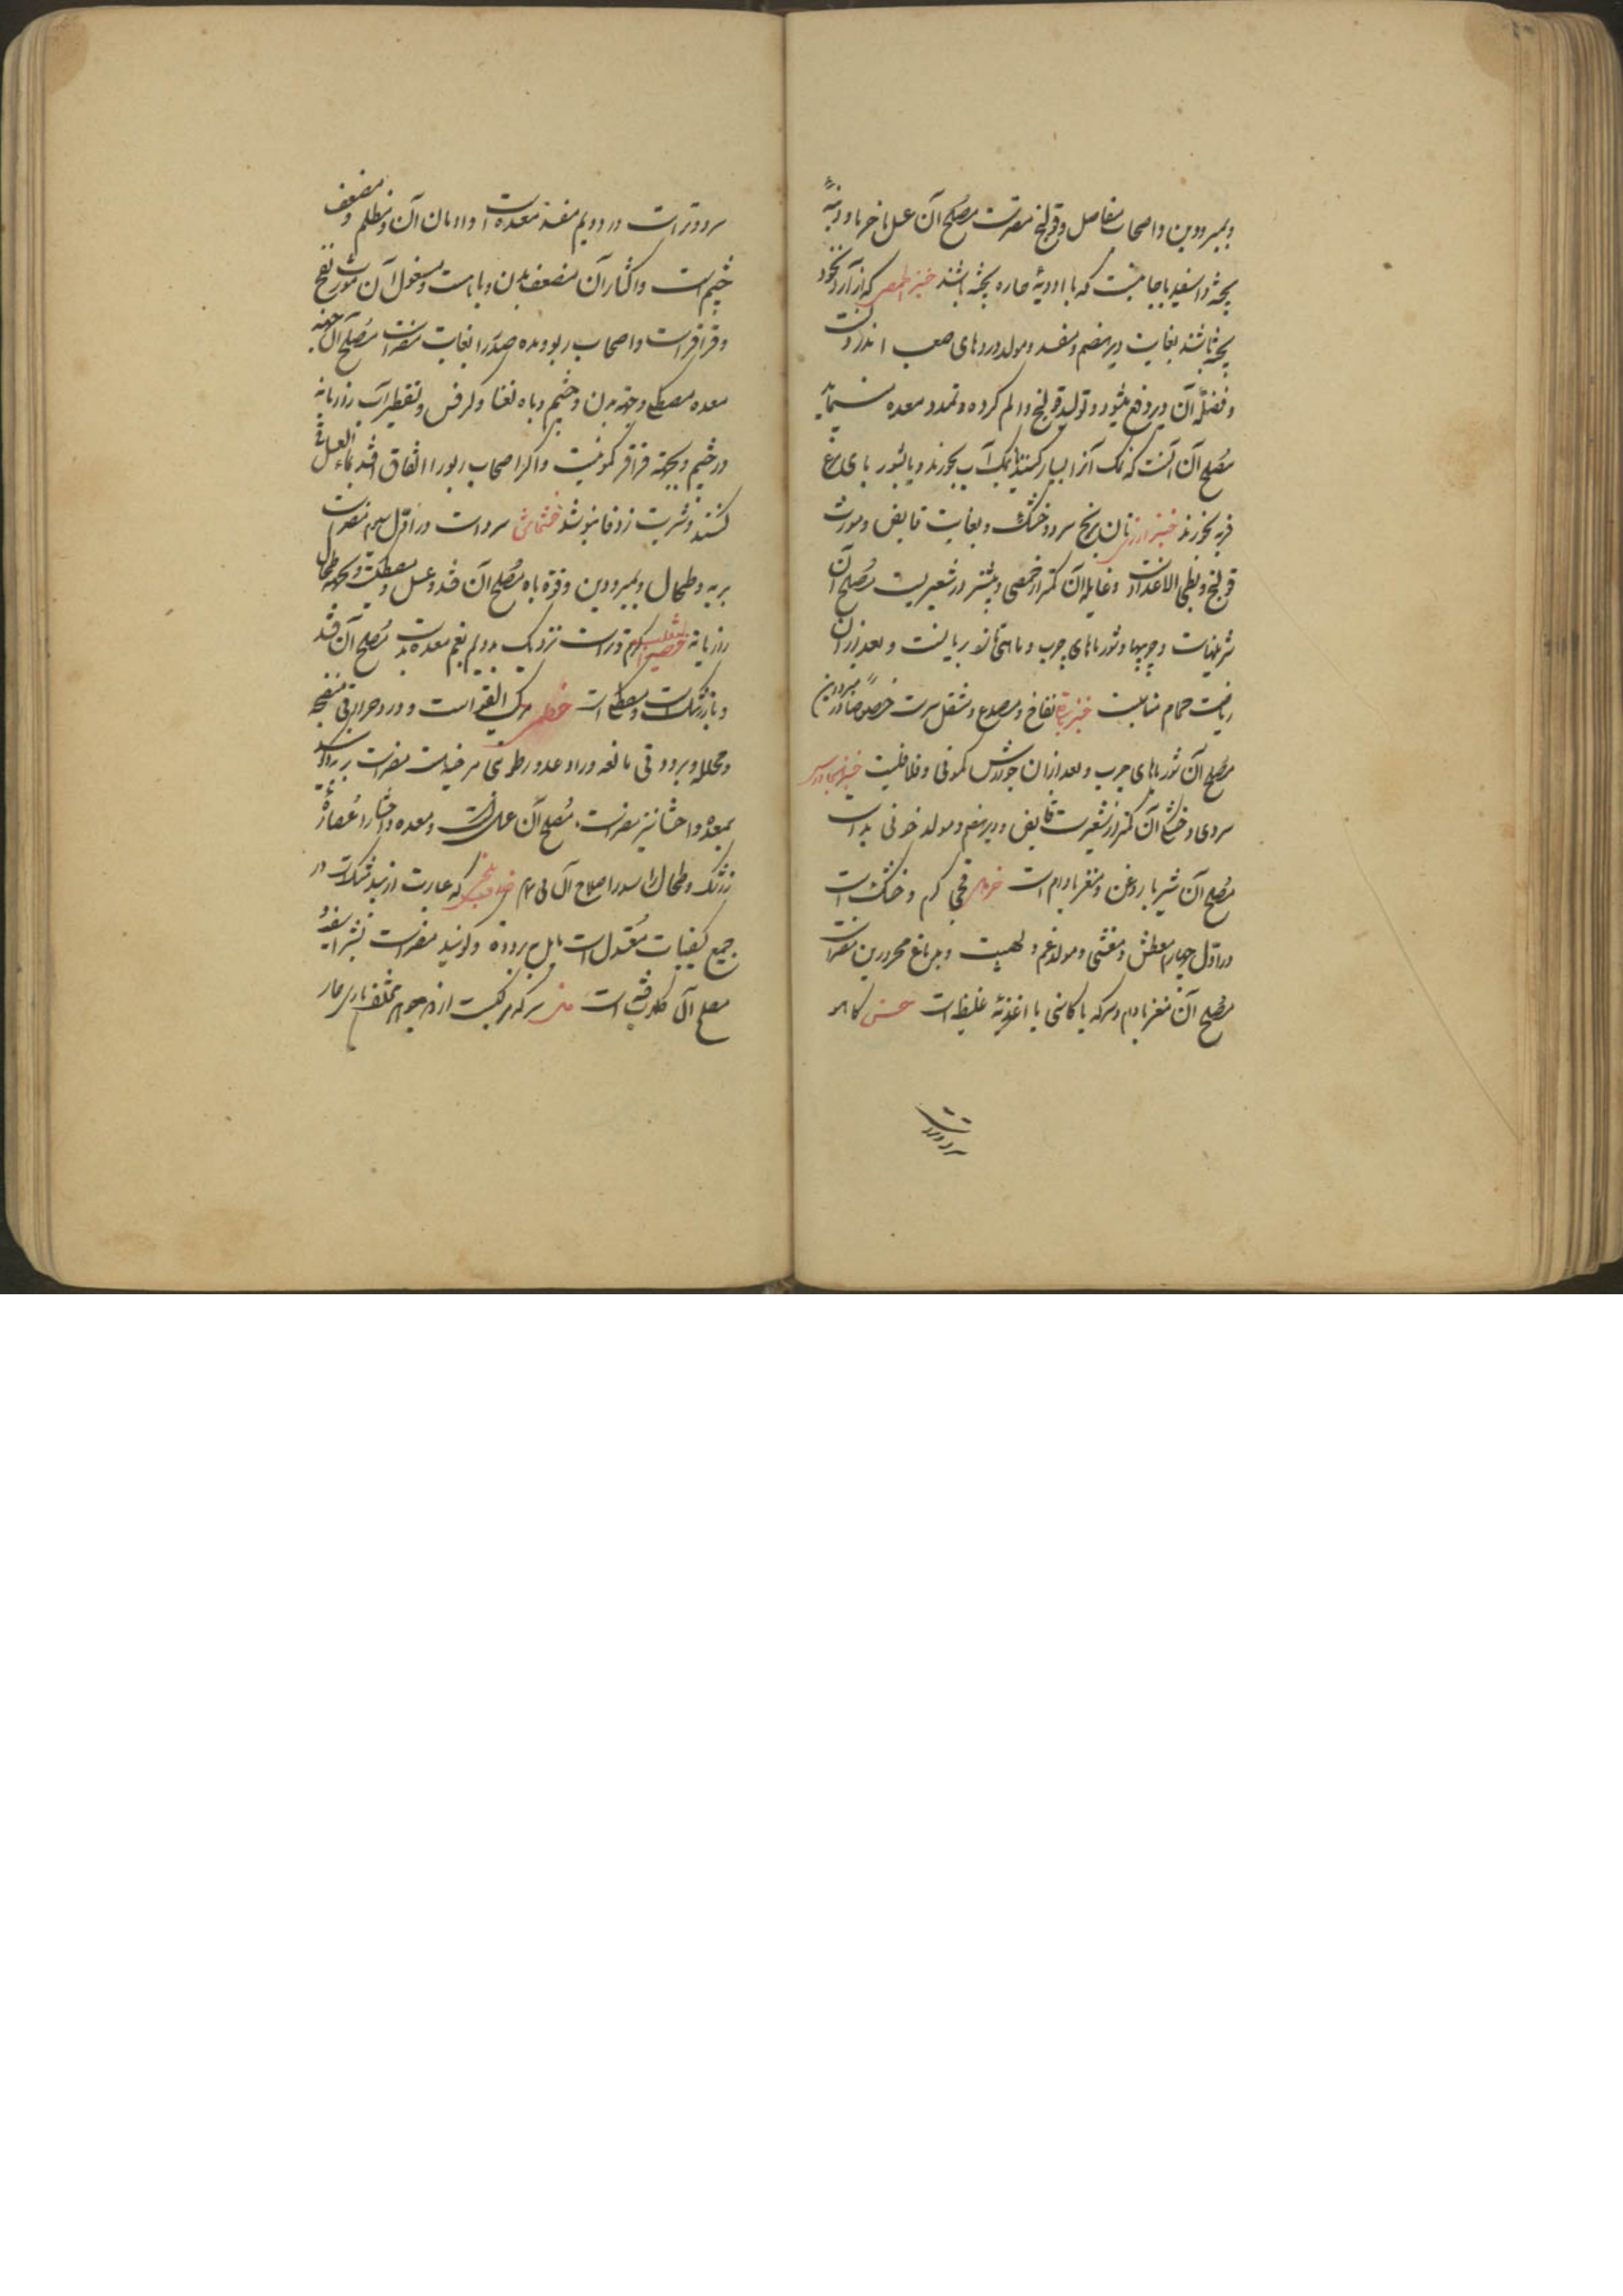 و بمبرودین و اصحاب مفاصل و قولنج مضرتست مصلح آن عسل با خرما و دنبهٔ
پخته و اسفیدباجاتیست که با ادویهٔ حاره پخته باشند خبز الحمص که از آرد نخود
پخته باشند بغایت دیر هضم و مفسد و مولد دردهای صعب اندرونست
و فضلهٔ آن دیر دفع میشود و تولید قولنج و الم کرده و تمدد معده مینماید
مصلح آن آنست که نمک آنرا بسیار کنند یا بنمک آب بخورند و یا بشوربای مرغ
فربه بخورند خبز ارز نان برنج سرد و خشک و بغایت قابض و مورث
قولنج و بطی الانحدار است و غایلهٔ آن کمتر از حمصی و بیشتر از شعیریست مصلح آن
شیرینیات و چربیها و شورباهای چرب و ماهی تازه بریانست و بعد از آن
ریاضت حمام مناسبست خبز نفاخ و مصدع و مثقل سرست خصوصا در مبرودین
مصلح آن شورباهای چرب و بعد از آن جوارش کمونی و فلافلیست خبز الجاورس
سردی و خشکی آن کمتر از شعیرست قابض و دیر هضم و مولد خونی بد است
مصلح آن شیر با روغن و مغز بادام است گرم و خشک است
در اول چهارم معطش و مغثی و مولد غم و لهیبت و بدماغ محرورین مضر است
مصلح آن مغز بادام و سرکه یا کاسنی یا اغذیهٔ غلیظ است خس کاهو
سرد و تر است
سرد و تر است در دویم مفسد معده است و ادمان آن مظلم و مضعف
چشم است و اکثار آن مضعف بدن و باه است و مغسول آن مورث نفخ
و قراقر است و اصحاب ربو و مده صدر را بغایت مضر است مصلح آن جهت
معده مصطکی و جهت بدن و چشم و باه نعنا و کرفس و تقطیر آب رازیانه
در چشم و بجهت قراقر کمونیست و اگر اصحاب ربو را اتفاق افتد بماء العسل قی
کنند و شربت زوفا بنوشند خشخاش سرد است در اول سیم مضر است
بریه و طحال و بمبرودین و قوة باه مصلح آن قند و عسل و مصطکیست و بجهت طحال
رازیانه خصی الثعلب گرم و تر است نزدیک بدویم بفم معده بد است مصلح آن قند
و با زرشک است و مصطکی است خطمی مرکب القوی است و در او حرارتی منضجه
و محلله و برودتی مانعه و رادعه و رطوبتی مرخیه است مضر است
بمعده و احشا نیز مضر است مصلح آن عسل است و معده و احشا را عصارهٔ
زرشک و طحال را اصلاح آن خلاف بلخی که عبارت از بید مشک است در
جمیع کیفیات معتدل است مایل ببرودة و گویند مضر است
مصلح آن گلاب است خل سرکه مرکبست از دو جوهر مختلف ناری حار